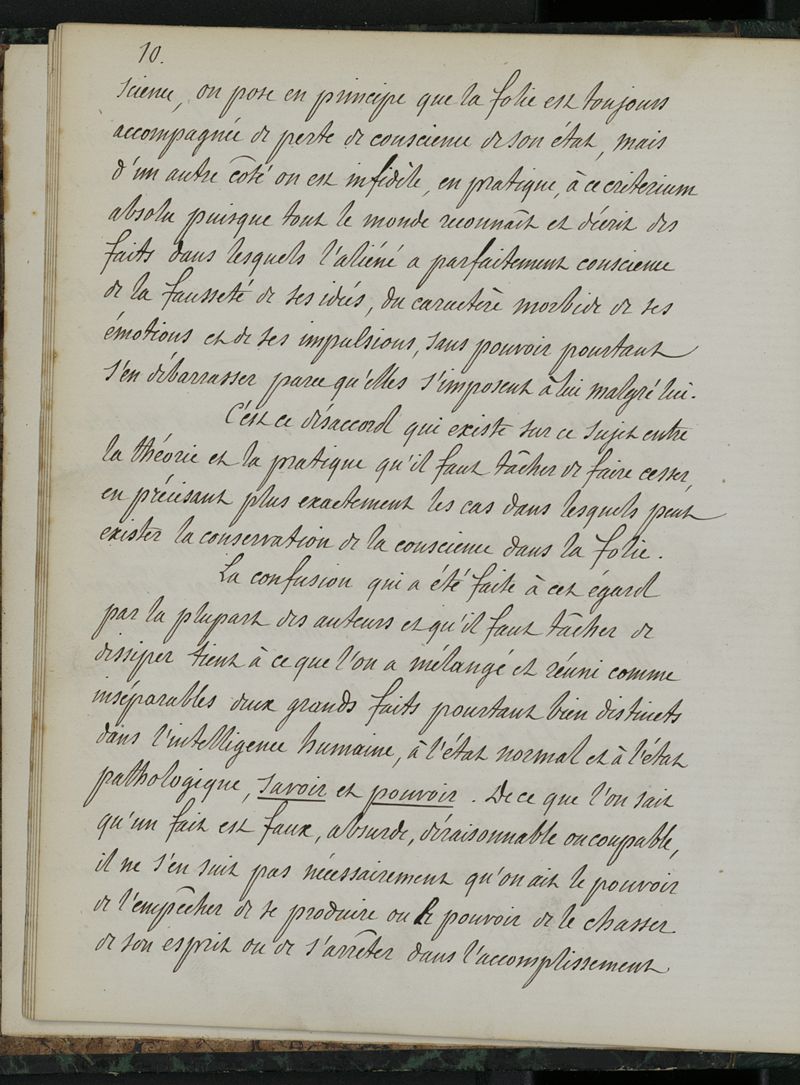 10.
science, on pose en principe que la folie est toujours
accompagnée de perte de conscience de son état, mais
d'un autre côté on est infidèle, en pratique, à ce criterium
absolu puisque tout le monde reconnaît et décrit des
faits dans lesquels l'aliéné a parfaitement conscience
de la fausseté de ses idées, du caractère morbide de ses
émotions et de ses impulsions, sans pouvoir pourtant
s'en débarrasser parce qu'elles s'imposent à lui malgré lui.
C'est ce désaccord qui existe sur ce sujet entre
la théorie et la pratique qu'il faut tâcher de faire cesser,
en précisant plus exactement les cas dans lesquels peut
exister la conservation de la conscience dans la folie.
La confusion qui a été faite à cet égard
par la plupart des auteurs et qu'il faut tâcher de
dissiper tient à ce que l'on a mélangé et réuni comme
inséparables deux grands faits pourtant bien distincts
dans l'intelligence humaine, à l'état normal et à l'état
pathologique, savoir et pouvoir. De ce que l'on sait
qu'un fait est faux, absurde, déraisonnable ou coupable,
il ne s'en suit pas nécessairement qu'on ait le pouvoir
de l'empêcher de se produire ou le pouvoir de le chasser
de son esprit ou de s'arrêter dans l'accomplissement